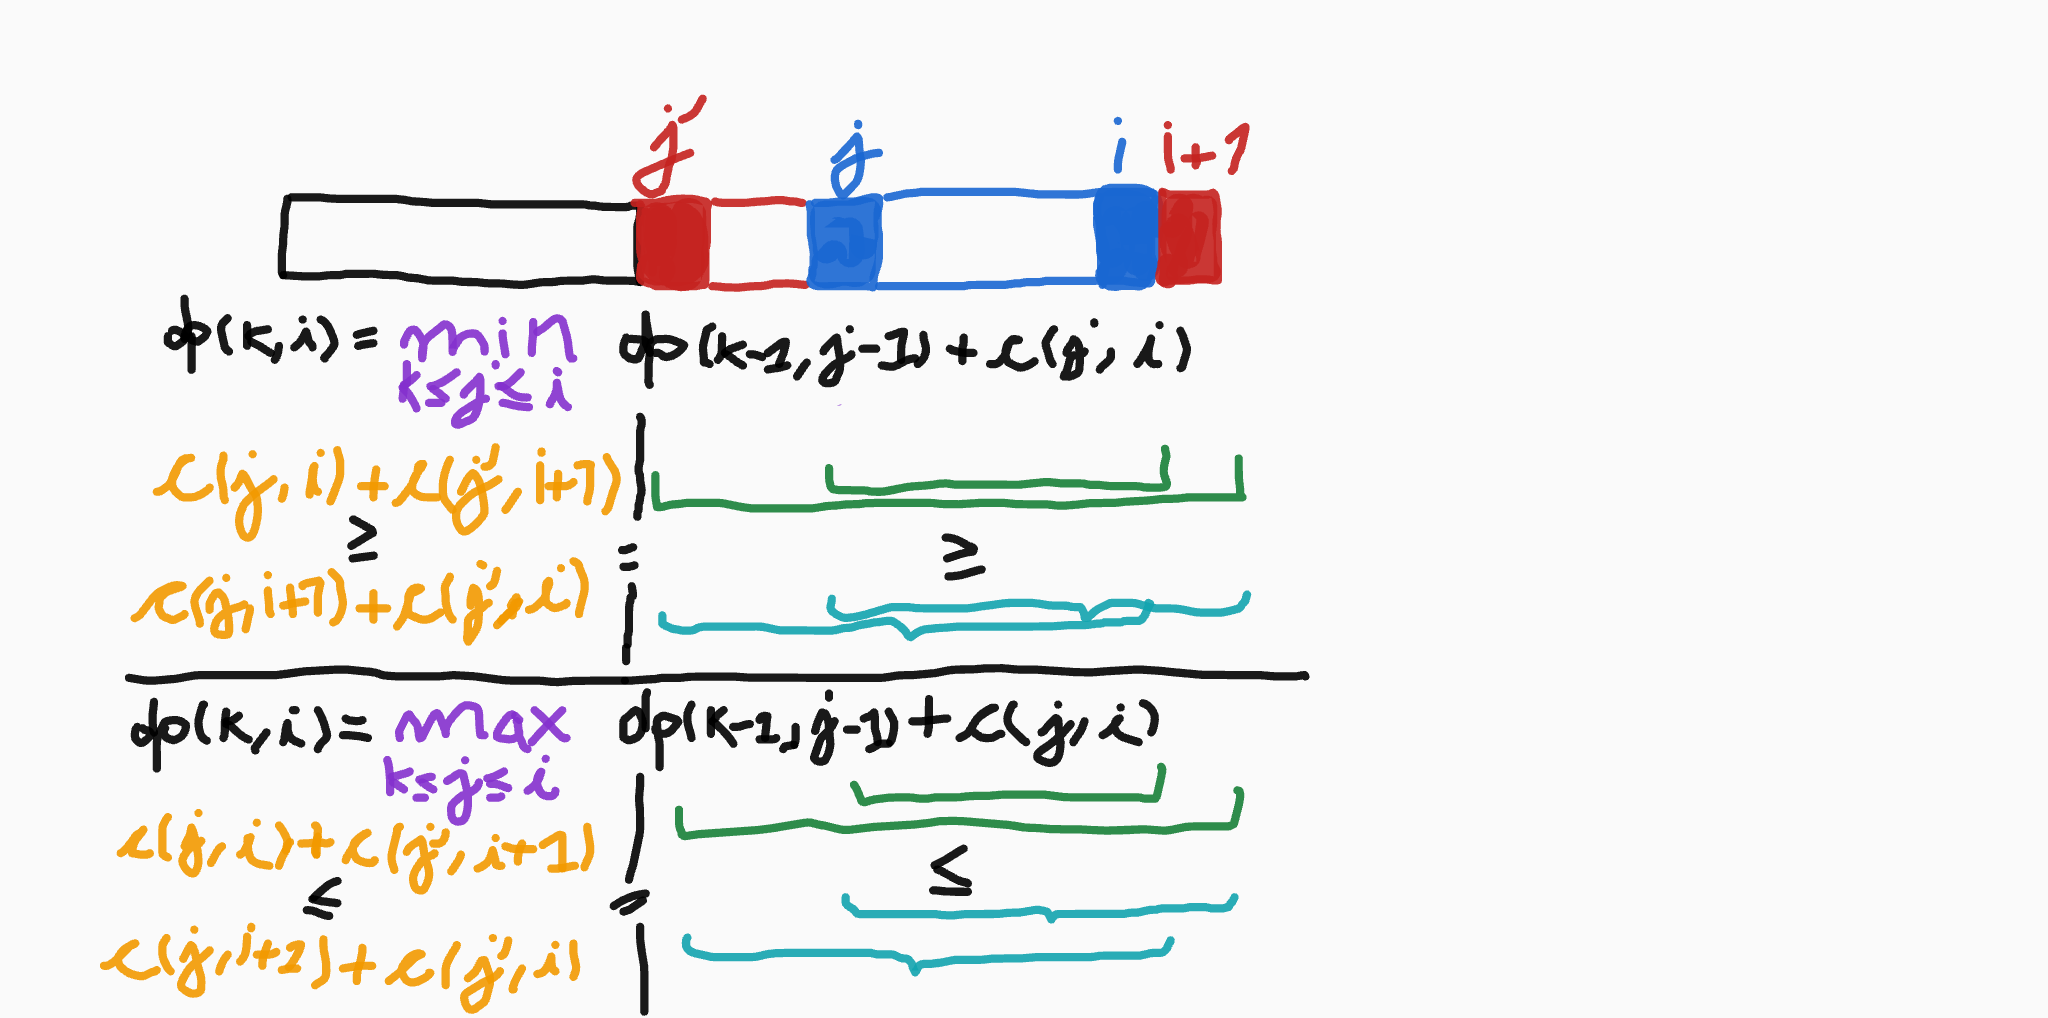 j' j i i+1
dp(k,i) = min dp(k-1, j-1) + c(j, i)
k≤j≤i
c(j, i) + c(j', i+1)
≥ = ≥
c(j, i+1) + c(j', i)
dp(k, i) = max dp(k-1, j-1) + c(j, i)
k≤j≤i
c(j, i) + c(j', i+1)
≤ = ≤
c(j, j+1) + c(j', i)